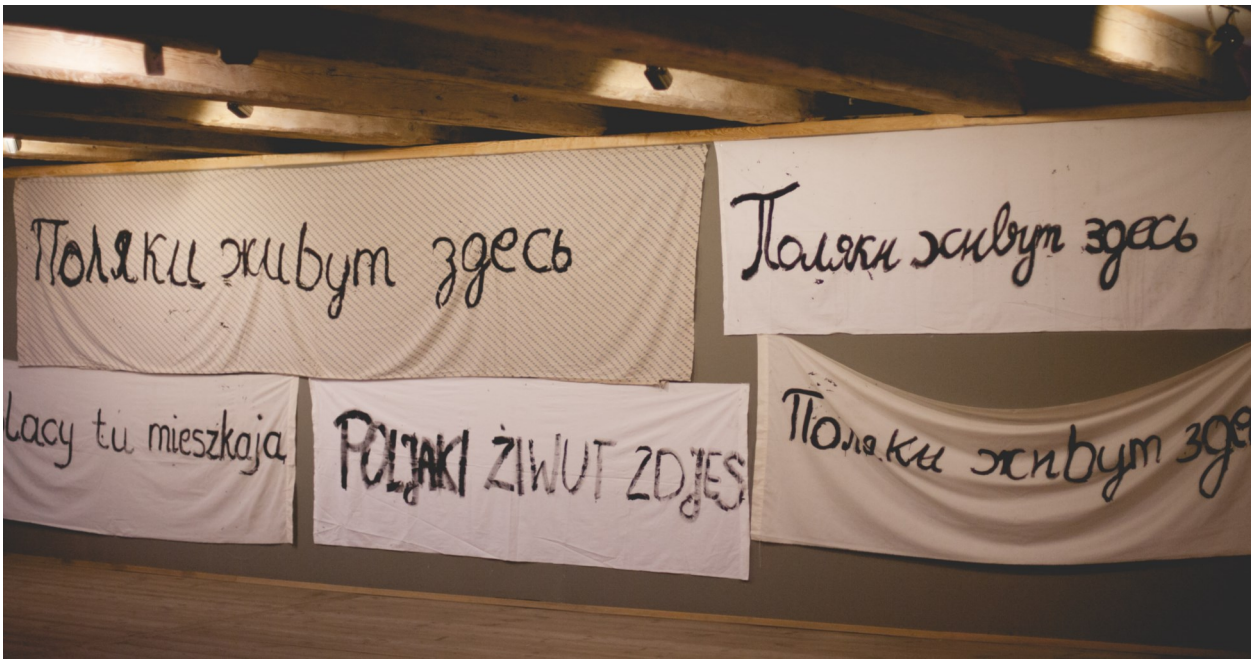 Поляки живут здесь
Поляки живут здесь
lacy tu mieszkają
POLJAKI ŻIWUT ZDJES
Поляки живут зде